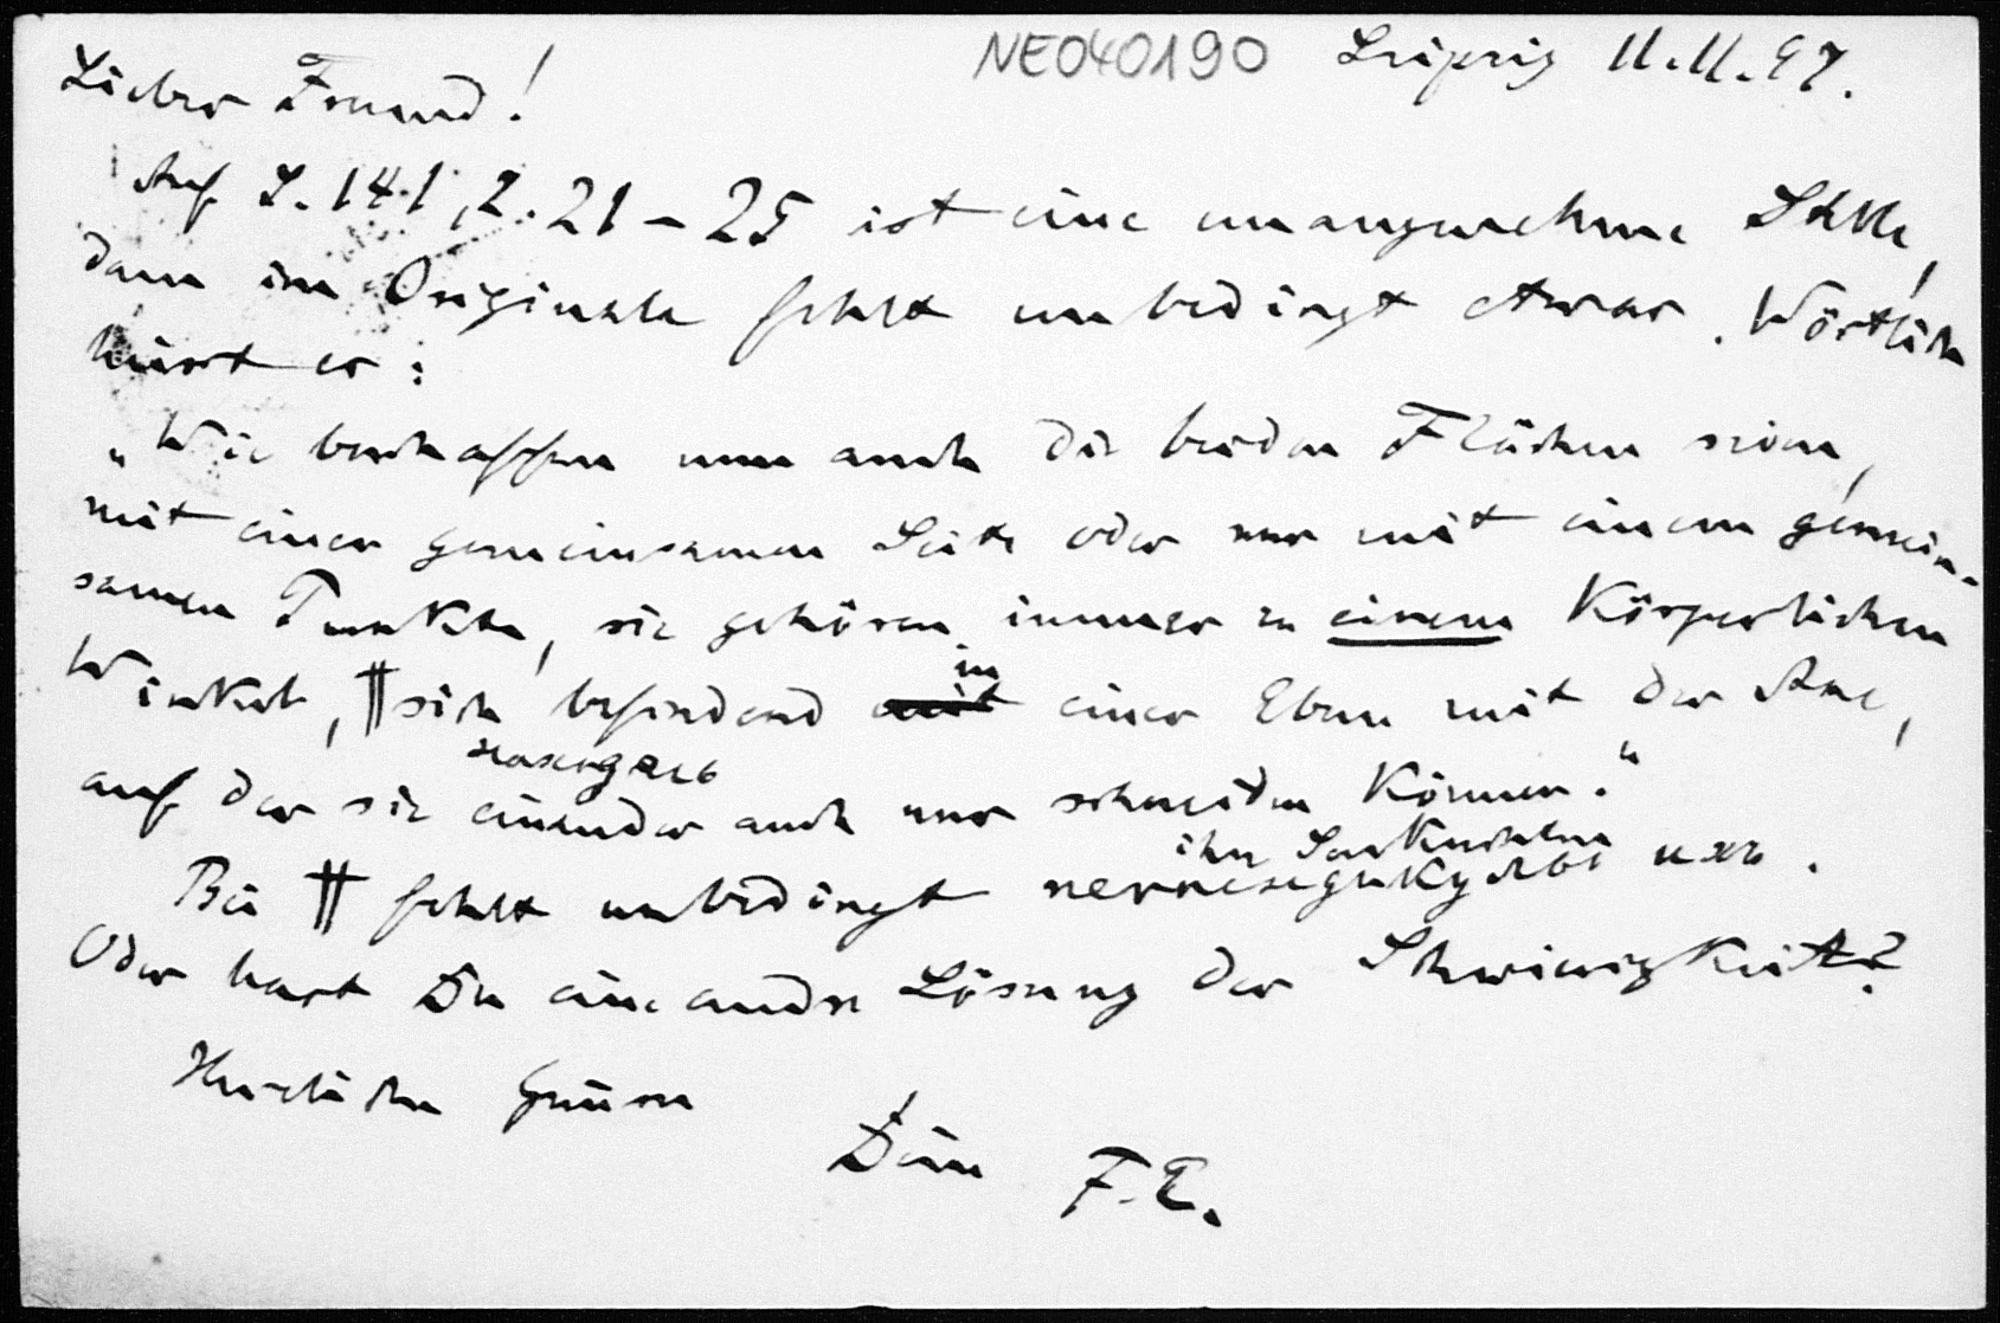 NE040190 Leipzig 11.11.97.
Lieber Freund!
Auf S. 141, Z. 21–25 ist eine unangenehme Stelle,
denn im Originale fehlt unbedingt etwas. Wörtlich
heisst es:
„Wie beschaffen nun auch die beiden Flächen seien,
mit einer gemeinsamen Seite oder nur mit einem gemein-
samen Punkte, sie gehören immer zu einem Körperlichen
in
Winkel, ╫ sich befindend mit einer Ebene mit der Axe,
auf der sie einander auch nur schneiden können.“
ihre Senkrechten
Bei ╫ fehlt unbedingt
Oder hast Du eine andre Lösung der Schwierigkeit?
Herzliche Grüsse
Dein F.E.